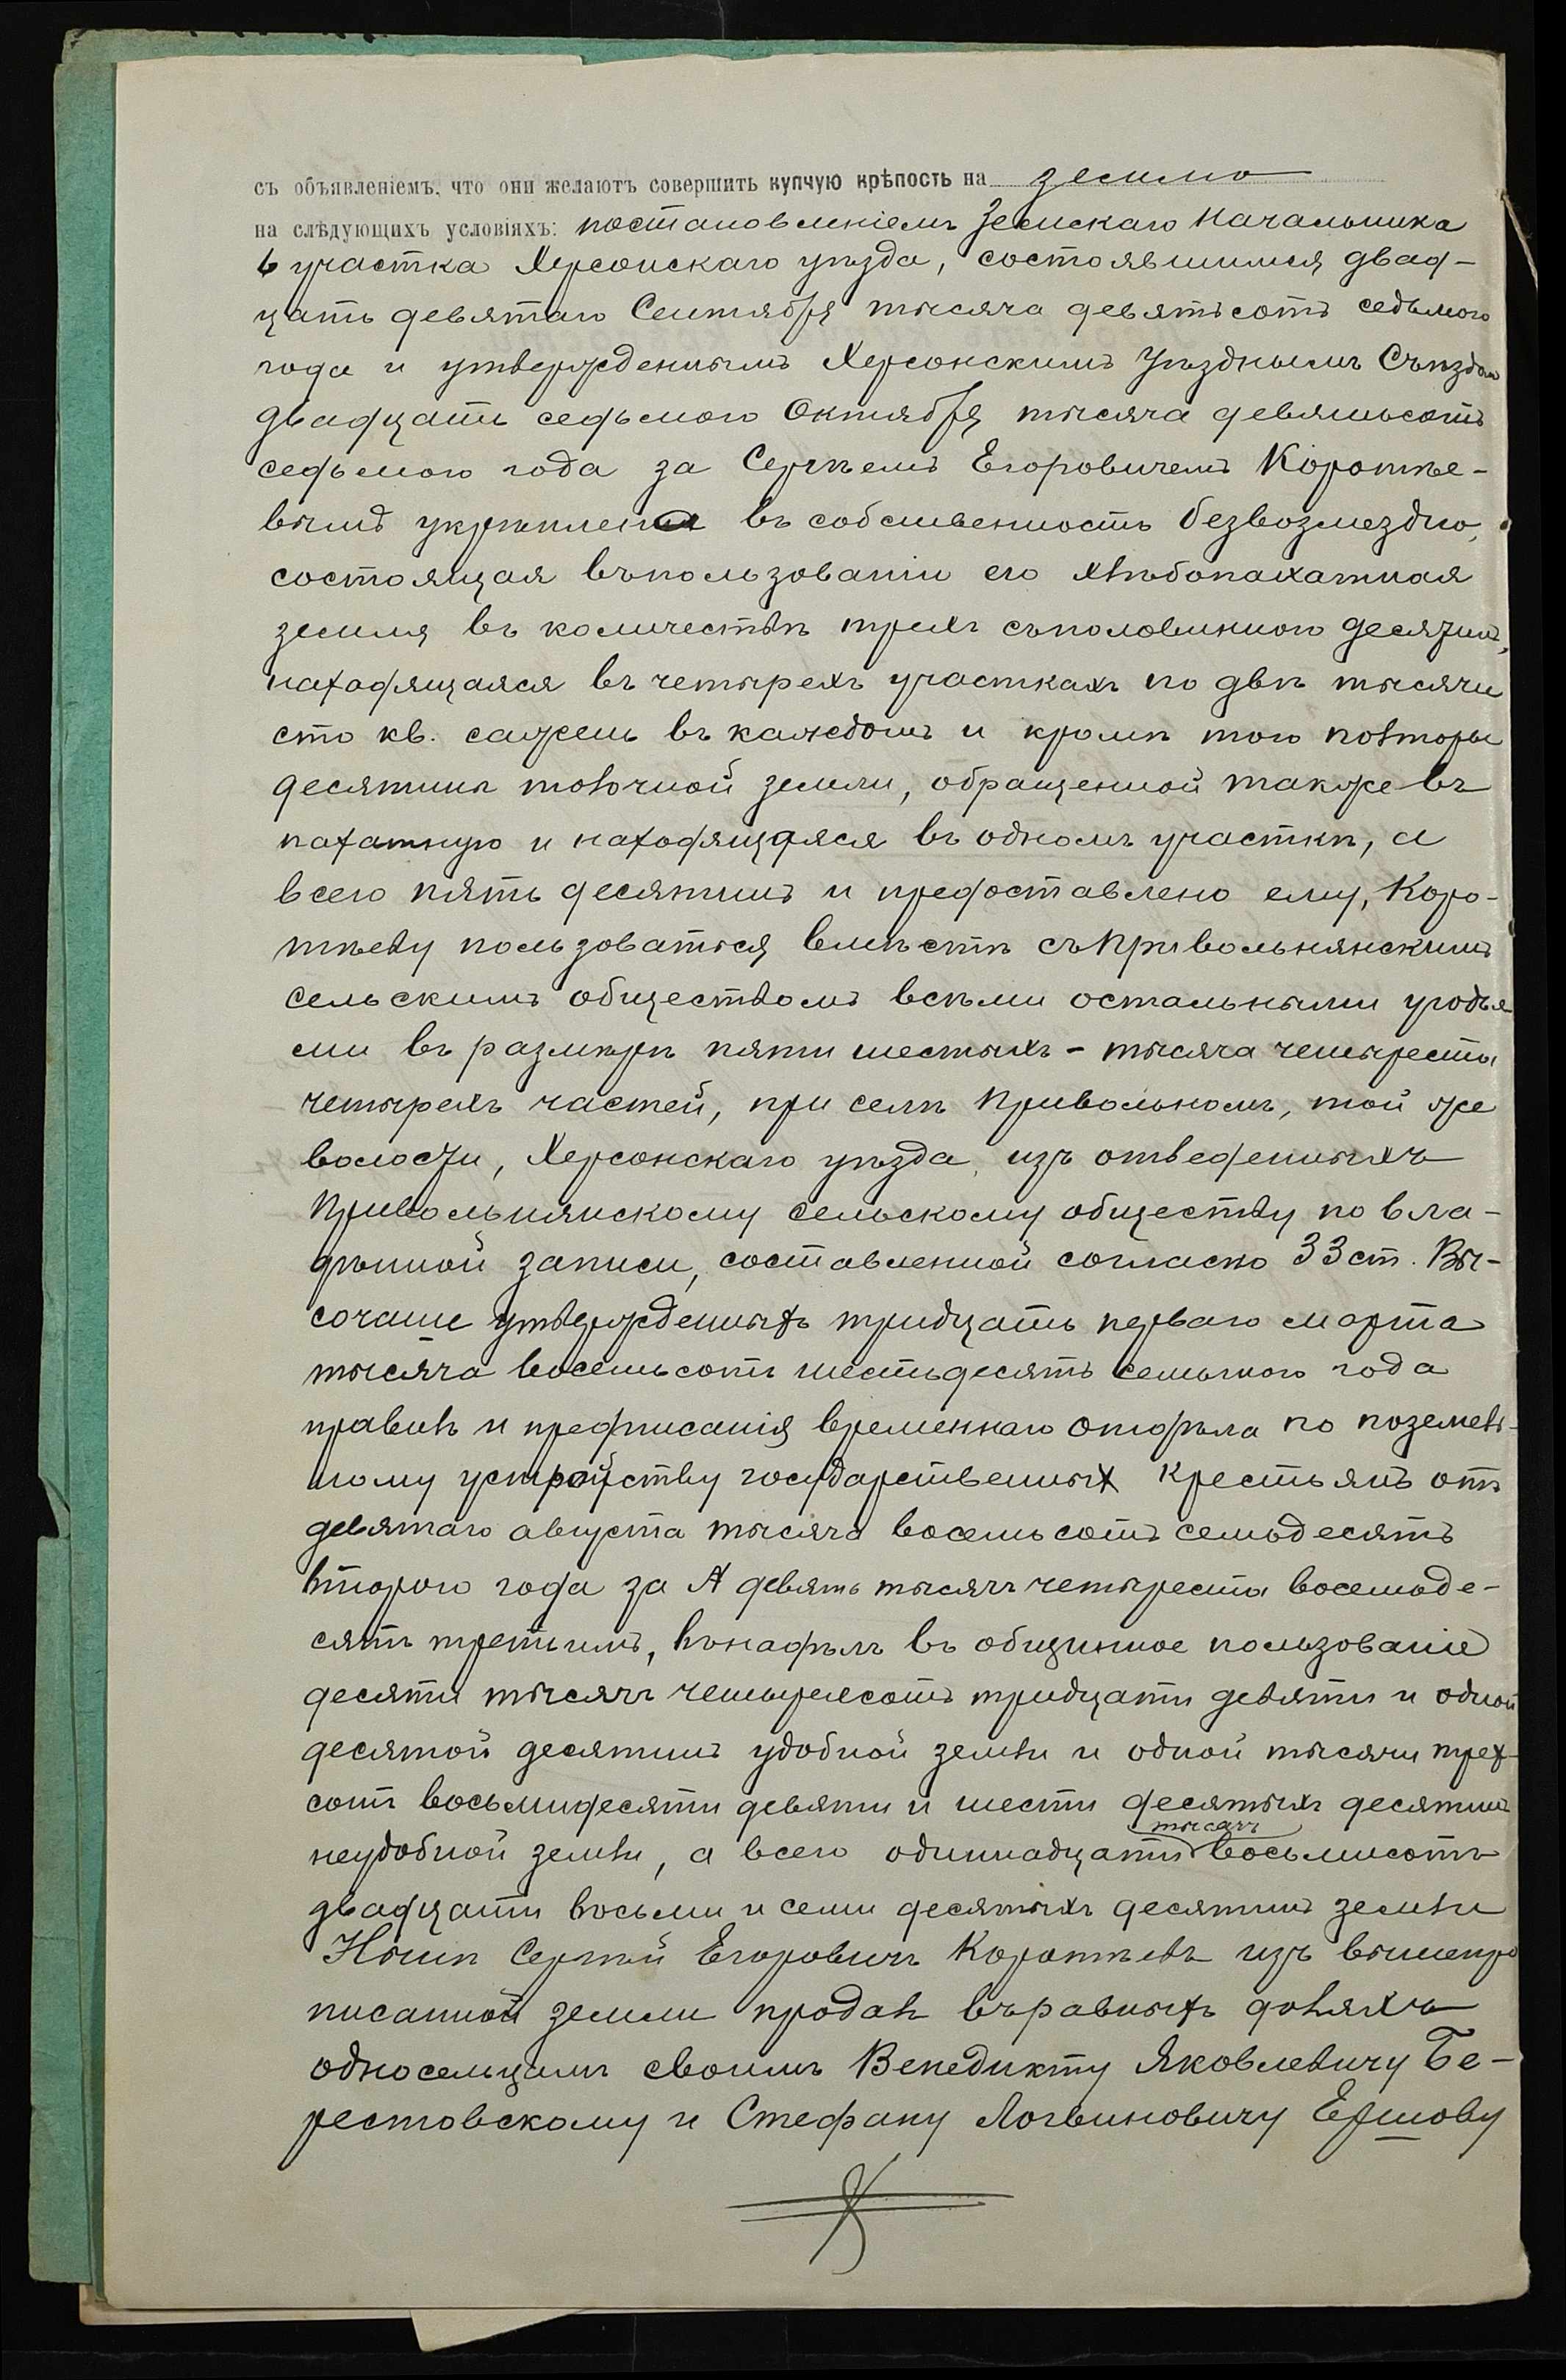 съ объявленіемъ, что они желаютъ совершить купчую крѣпость на землю
на слѣдующихъ условіяхъ: постановленіемъ Земскаго Начальника
6 участка Херсонскаго уѣзда, состоявшимся двад-
цать девятаго Сентября тысяча девятьсотъ седьмого
года и утвержденнымъ Херсонскимъ Уѣзднымъ Съѣздомъ
двадцать седьмого Октября тысяча девятьсотъ
седьмого года за Сергѣемъ Егоровичемъ Коротѣе-
вымъ укрѣплена въ собственность безвозмездно,
состоящая въ пользованіи его хлѣбопахатная
земля въ количествѣ трехъ съ половиною десятинъ,
находящаяся въ четырехъ участкахъ по двѣ тысячи
сто кв. сажень въ каждомъ и кромѣ того полторы
десятины толочной земли, обращенной также въ
пахатную и находящаяся въ одномъ участкѣ, а
всего пять десятинъ и предоставлено ему, Коро-
тѣеву пользоваться вмѣстѣ съ Привольнянскимъ
сельскимъ обществомъ всѣми остальными угодья
ми въ размѣрѣ пяти шестыхъ - тысяча четыреста
четырехъ частей, при селѣ Привольномъ, той же
волости, Херсонскаго уѣзда, изъ отведенныхъ
Привольнянскому сельскому обществу по вла-
дѣнной записи, составленной согласно 33 ст. Вы-
сочаше утвержденныхъ тридцать перваго марта
тысяча восемьсотъ шестьдесятъ семьмого года
правилъ и предписанія временнаго отдѣла по поземель-
ному устройству государственныхъ крестьянъ отъ
девятаго августа тысяча восемьсотъ семьдесятъ
второго года за № девять тысячъ четыреста восемьде-
сятъ третьимъ, въ надѣлъ въ общинное пользованіе
десяти тысячъ четырехсотъ тридцати девяти и одной
десятой десятинъ удобной земли и одной тысячи трех-
сотъ восьмидесяти девяти и шести десятыхъ десятинъ
неудобной земли, а всего одиннадцати тысячъ восьмисотъ
двадцати восьми и семи десятыхъ десятинъ земли
Нынѣ Сергѣй Егоровичъ Коротѣевъ изъ вышепро
писанной земли продалъ въ равныхъ доляхъ
односельцамъ своимъ Венедикту Яковлевичу Бе-
рестовскому и Стефану Логвиновичу Ершову